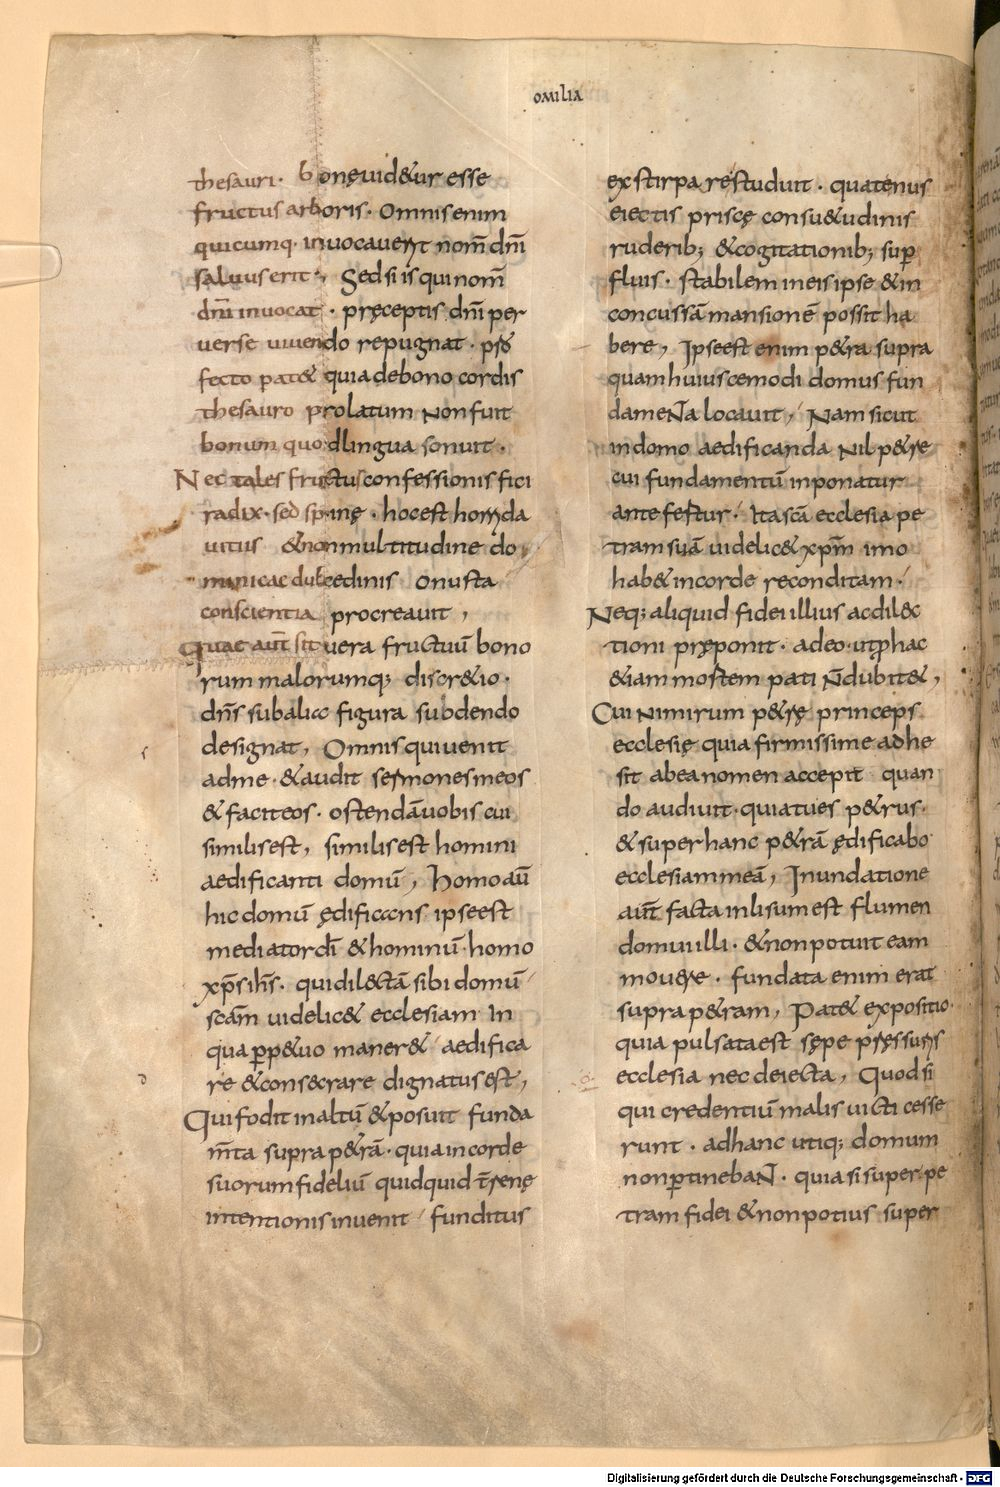 omilia
thesauri · bonę uid&ur esse
fructus arboris · Omnis enim
quicumq· inuocauerit nom̄ dn̄i
saluus erit ·, Sed si is qui nom̄
dn̄i inuocat · pręceptis dn̄i per
uerse uiuendo repugnat ·
fecto pat& quia de bono cordis
thesauro prolatum Non fuit
bonum quod lingua sonuit ·
Nec tales fructus confessionis fici
radix · sed spinę · hoc est horrida
uitiis & non multitudine do
minicae dulcedinis onusta
conscientia procreauit ,
Quae aut̄ sit uera fructuū bono
rum malorumq; discr&io ·
dn̄s sub alia figura subdendo
designat , Omnis qui uenit
ad me · & audit sermones meos
& facit eos · ostendā uobis cui
similis est , similis est homini
aedificanti domū , Homo aū
hic domū ędificans ipse est
mediator dī & hominū · homo
xp̄s ih̄s · qui dilectā sibi domū
scām uidelic& ecclesiam In
qua ꝑp&uo maner& aedifica
re & consecrare dignatus est ,
Qui fodit in altū & posuit funda
m̄ta supra p&rā · quia in corde
suorum fideliū quidquid t̄renę
intentionis inuenit / funditus
exstirpare studuit · quatenus
eiectis priscę consu&udinis
ruderib; & cogitationib; suꝑ
fluis · stabilem in eis ipse & in
concussā mansionē possit ha
bere , Ipse est enim p&ra supra
quam huiuscemodi domus fun
damenta locauit , Nam sicut
in domo aedificanda Nil p&re
cui fundamentū inponatur
antefertur · Ita scā ecclesia pe
tram suā uidelic& xp̄m imo
hab& in corde reconditam ·
Neq; aliquid fidei illius ac dilec
tioni pręponit · adeo · ut ꝓ hac
&iam mortem pati n̄ dubit& ,
Cui Nimirum p&rę princeps
ecclesię quia firmissime adhe
sit ab ea nomen accepit quan
do audiuit · quia tu es p&rus ·
& super hanc p&rā ędificabo
ecclesiam meā , Inundatione
aūt facta inlisum est flumen
domui illi · & non potuit eam
mouere · fundata enim erat
supra p&ram , Pat& expositio ·
quia pulsata est sępe pressuris
ecclesia nec deiecta , Quod si
qui credentiū malis uicti cesse
runt · ad hanc utiq; domum
non ꝑtinebant · quia si super pe
tram fidei & non potius super
Digitalisierung gefördert durch die Deutsche Forschungsgemeinschaft · DFG